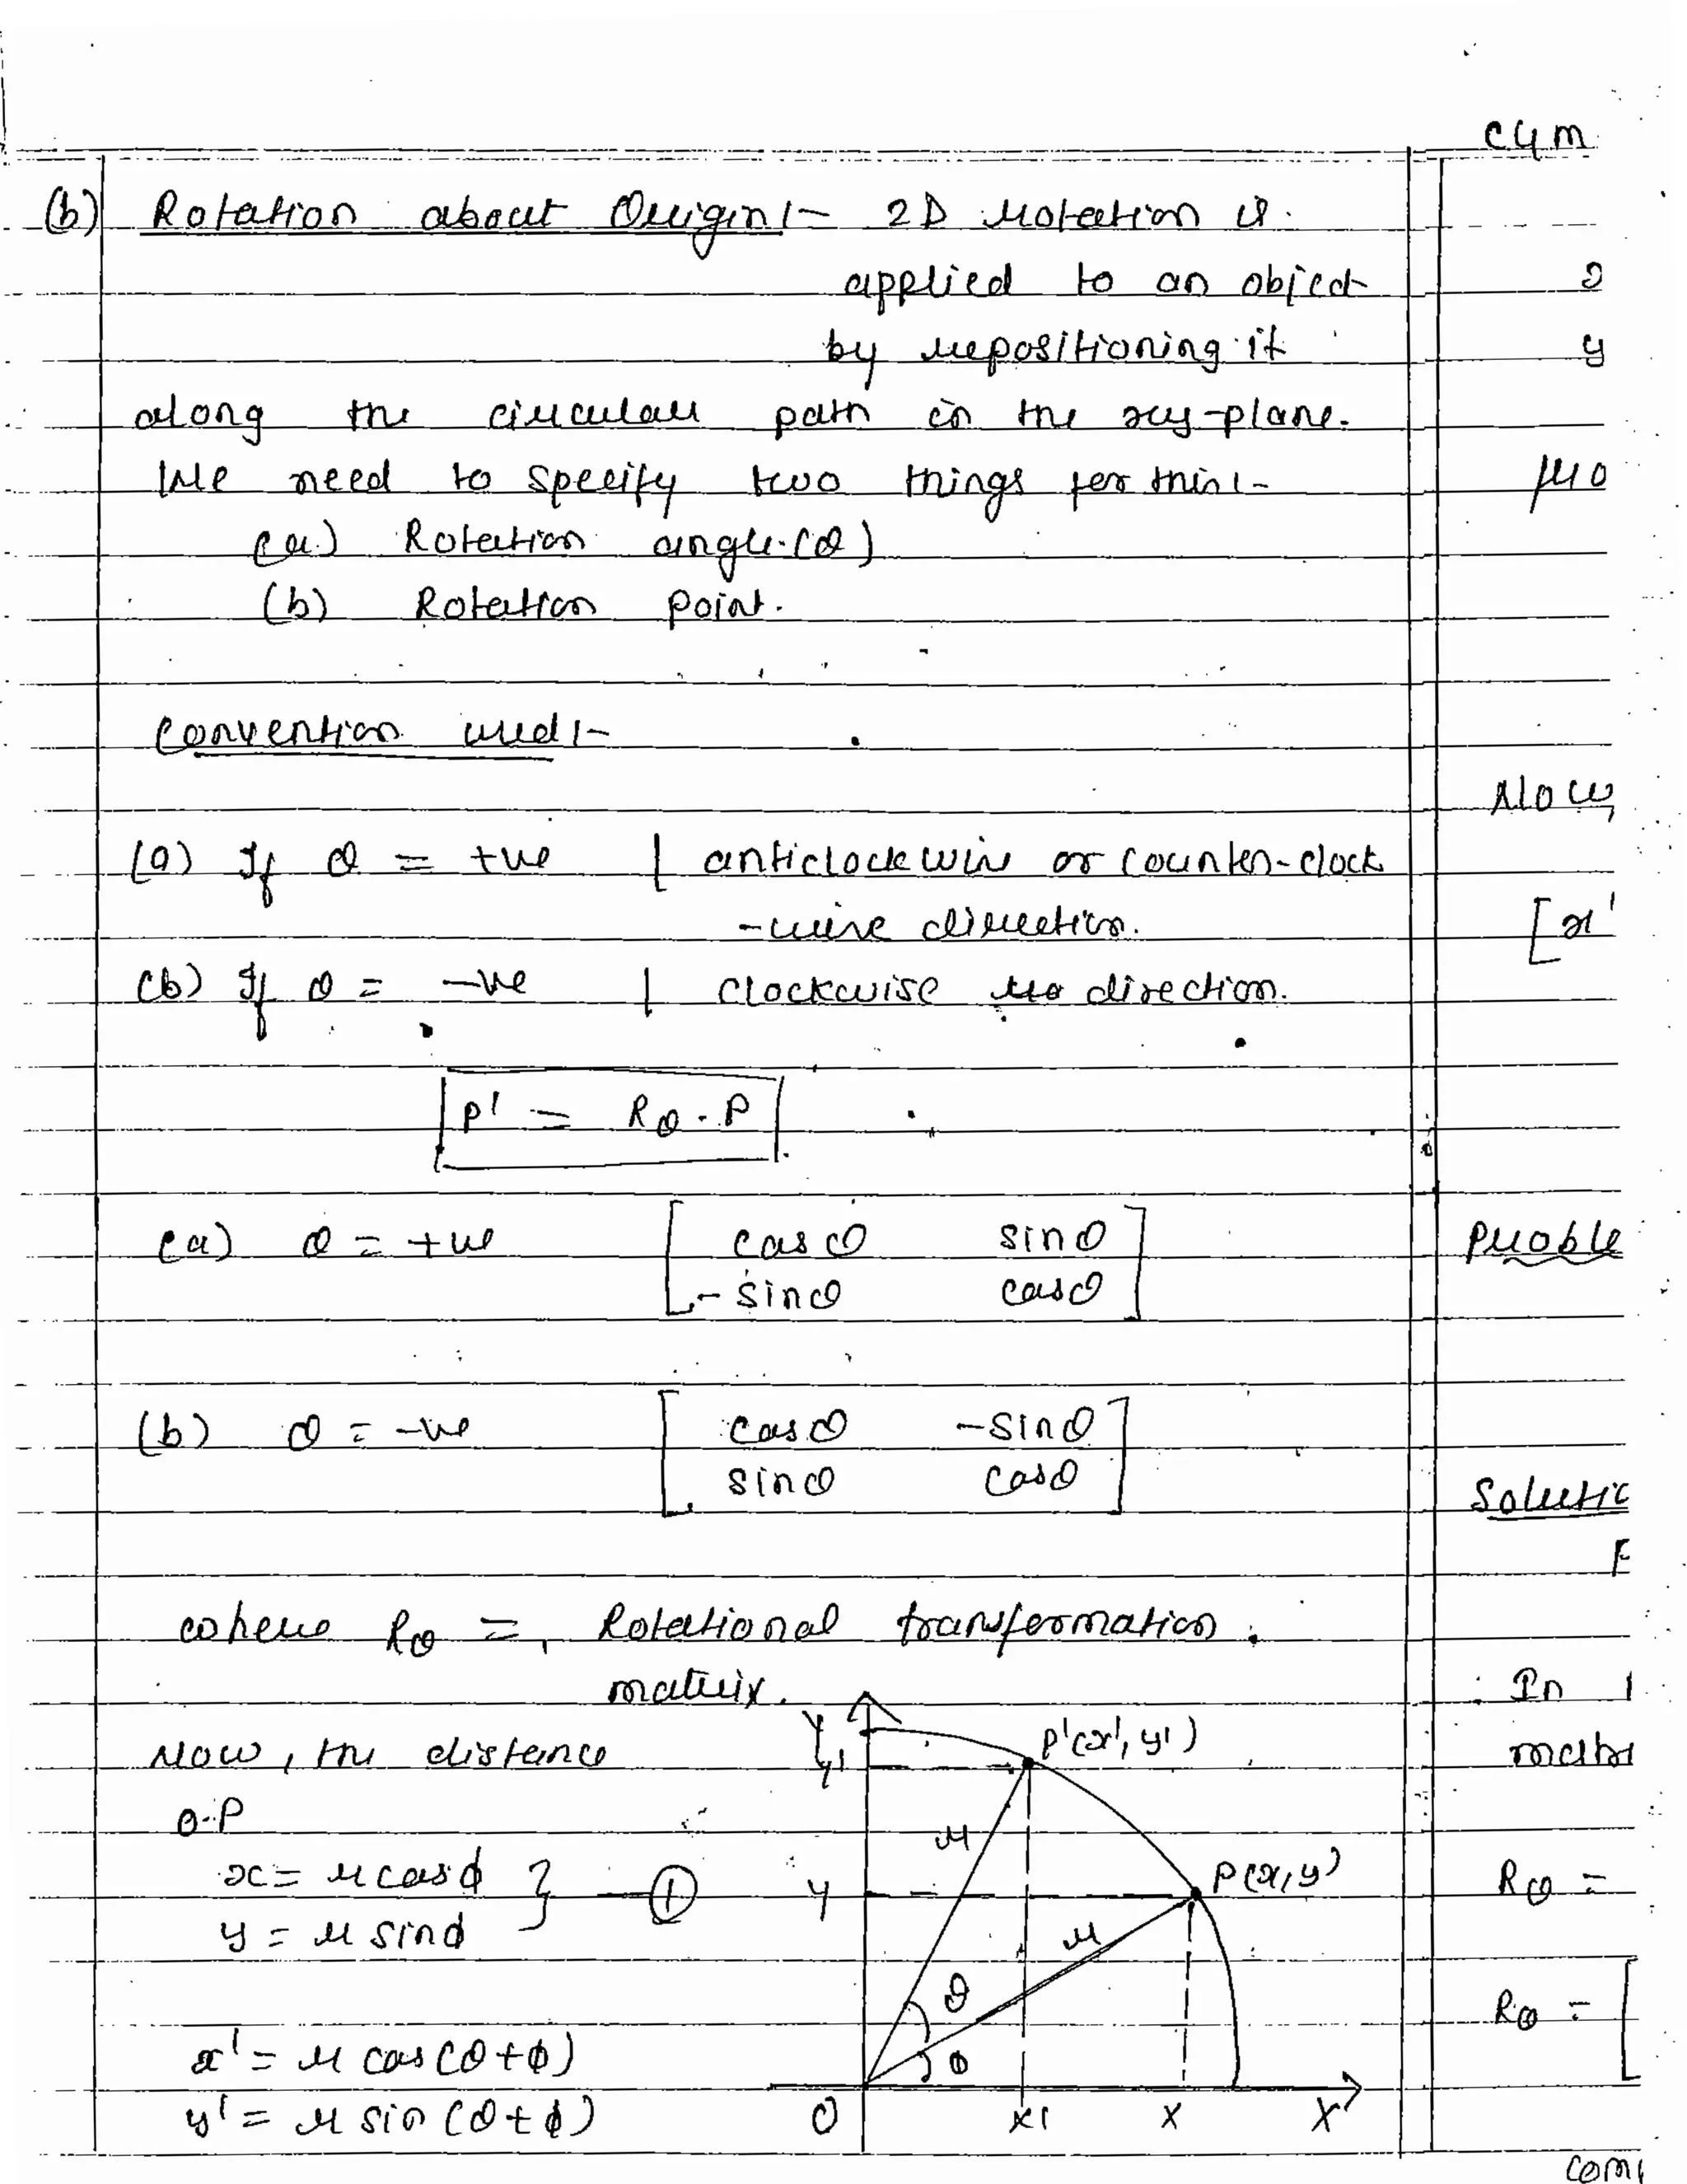 (b) Rotation about Origin:- 2D rotation is
applied to an object
by repositioning it
along the circular path in the xy-plane.
We need to specify two things for this:-
(a) Rotation angle (θ)
(b) Rotation point.
Convention used:-
(a) If θ = +ve | anticlockwise or counter-clock
-wise direction.
(b) If θ = -ve | clockwise direction.
P' = Rθ . P
(a) θ = +ve [ cosθ sinθ
-sinθ cosθ ]
(b) θ = -ve [ cosθ -sinθ
sinθ cosθ ]
where Rθ = Rotational transformation
matrix.
Now, the distance
O-P
x = r cosϕ
y = r sinϕ } — ①
x' = r cos(θ+ϕ)
y' = r sin(θ+ϕ)
Y
y'
P'(x', y')
r
y
P(x, y)
r
θ
ϕ
O x' x X
2
y
ro
Now,
[x'
Proble
Solutio
In
matr
Rθ =
Rθ = [
com